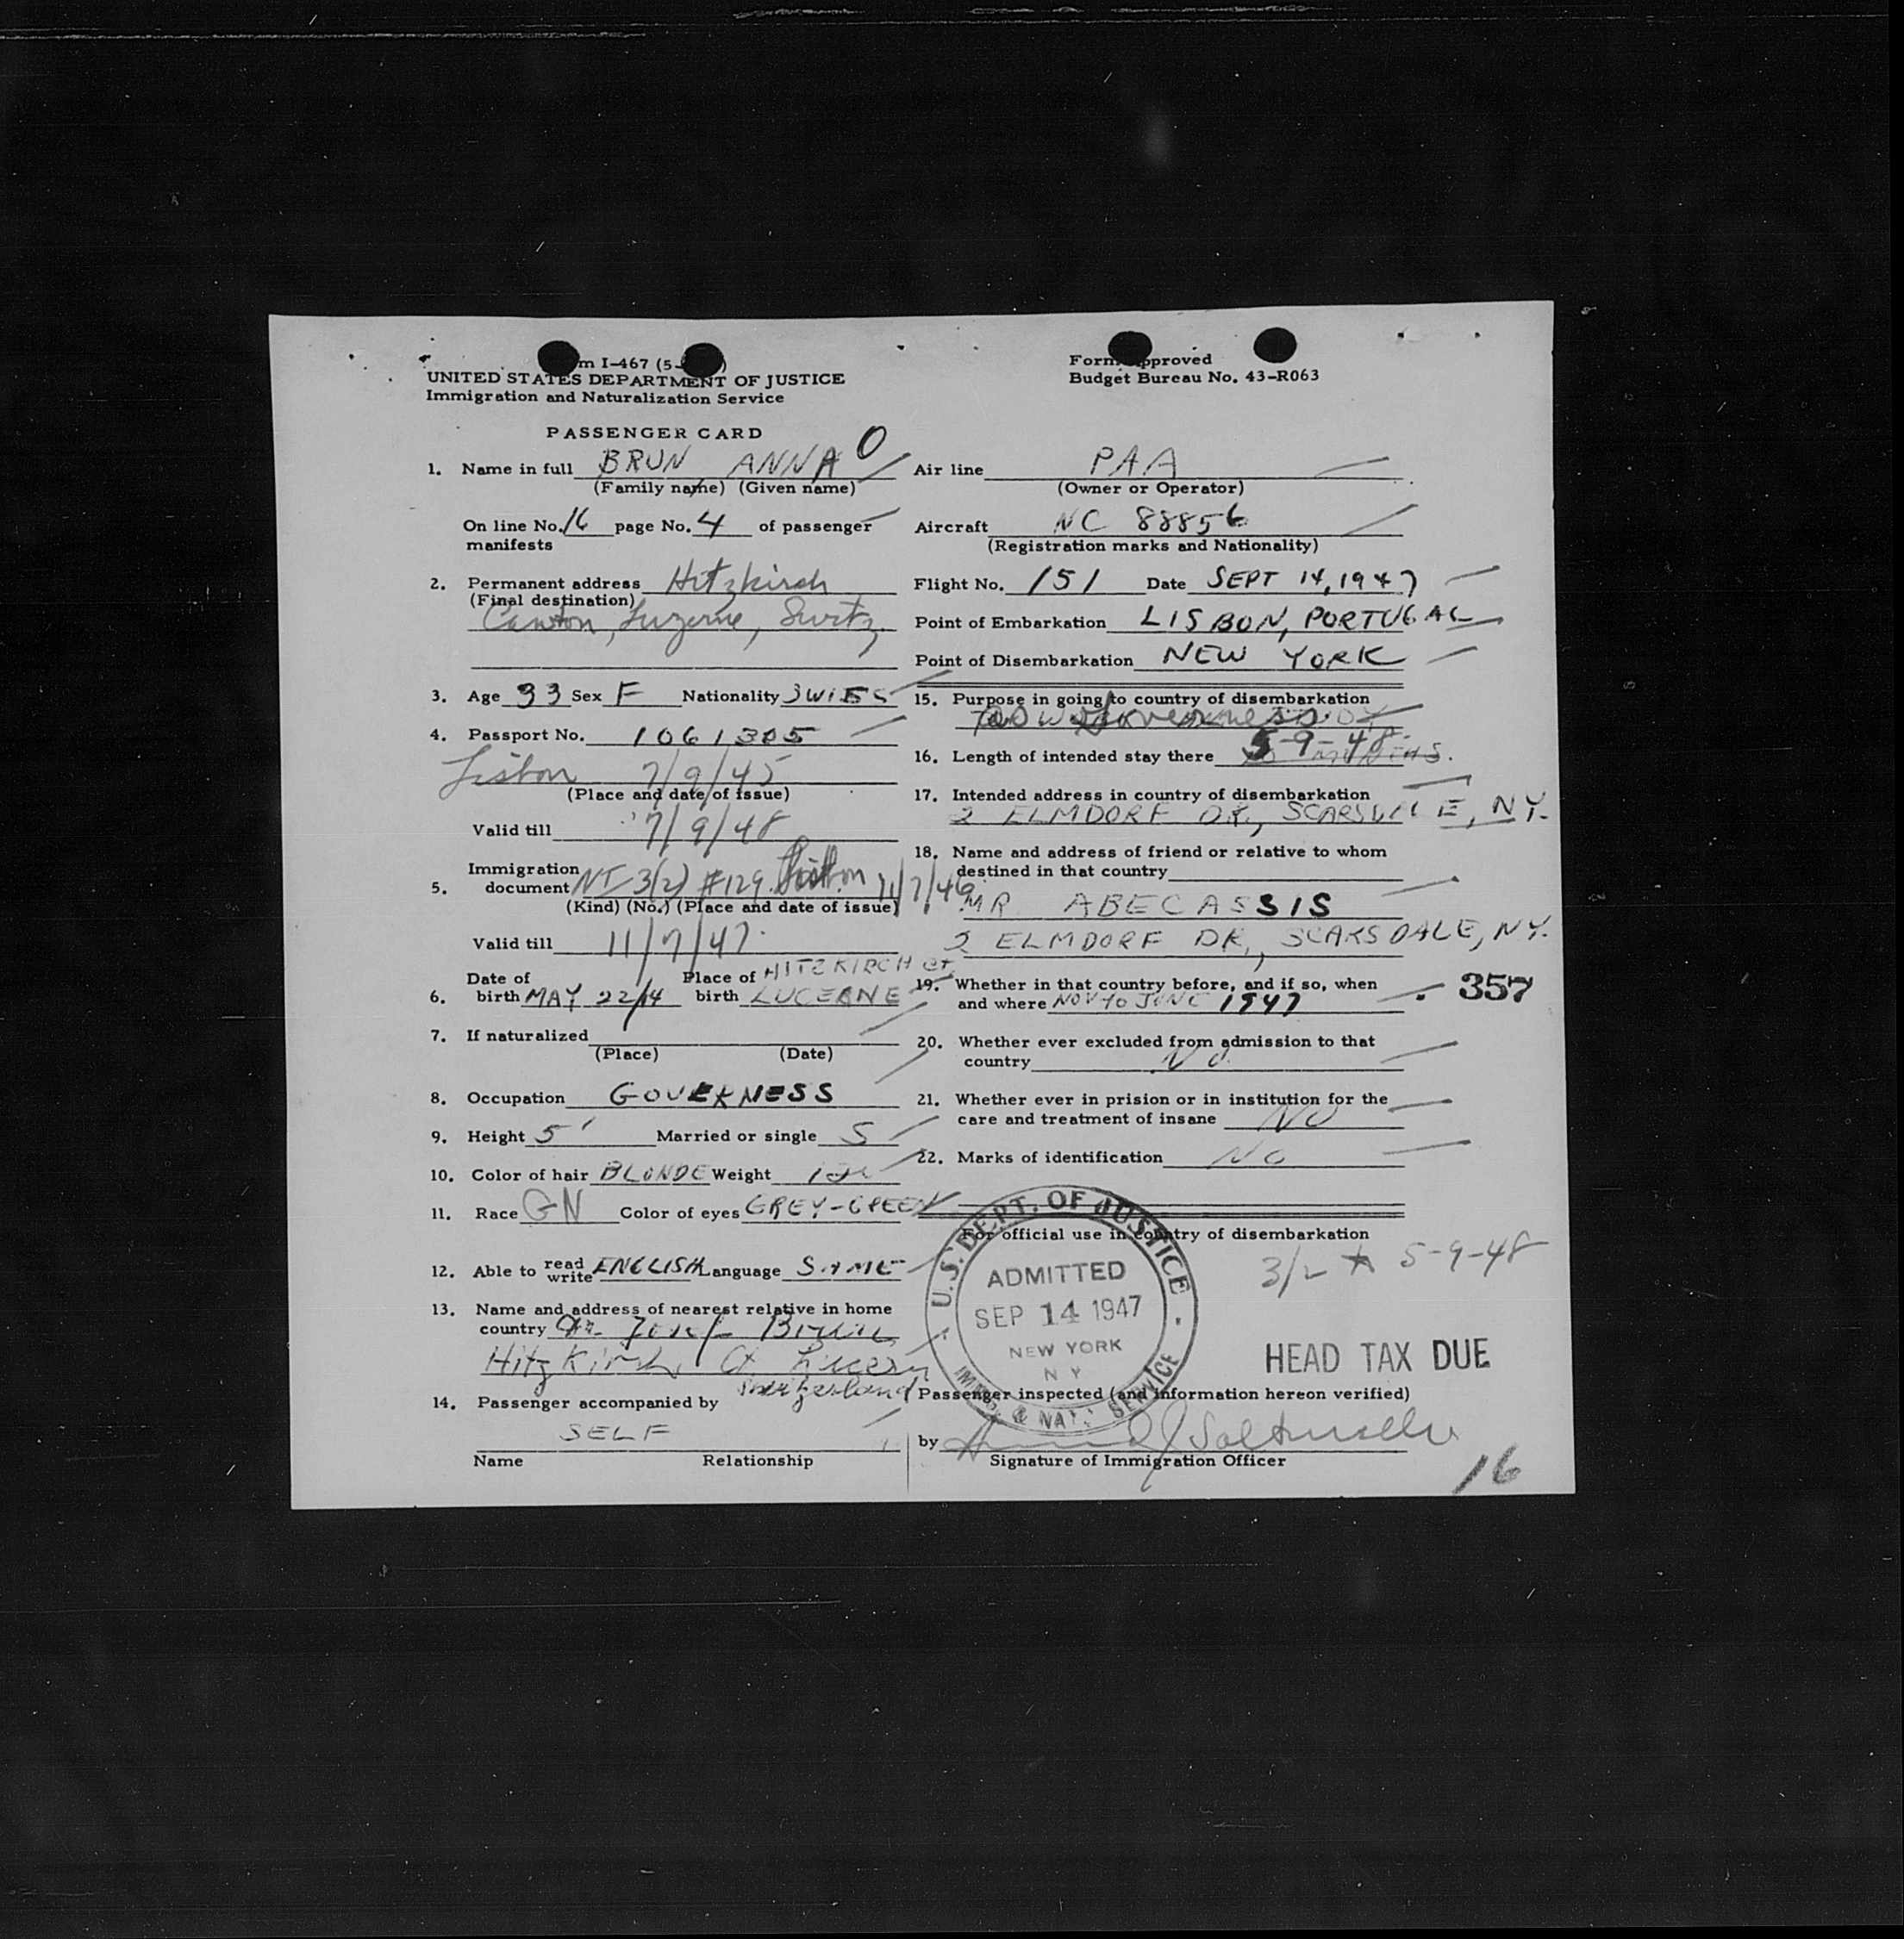 m I-467 (5-
UNITED STATES DEPARTMENT OF JUSTICE
Immigration and Naturalization Service
Form Approved
Budget Bureau No. 43-R063
PASSENGER CARD
1. Name in full BRUN ANNA O
(Family name) (Given name)
On line No. 16 page No. 4 of passenger
manifests
2. Permanent address Hitzkirch
(Final destination)
Canton, Luzerne, Switz.
3. Age 33 Sex F Nationality SWISS
4. Passport No. 1061305
Lisbon 7/9/45
(Place and date of issue)
Valid till 7/9/48
5. Immigration document NI 3(2) #129 Lisbon 11/7/46
(Kind) (No.) (Place and date of issue)
Valid till 11/7/47.
6. Date of birth MAY 22/14 Place of birth HITZKIRCH CT. LUCERNE
7. If naturalized
(Place) (Date)
8. Occupation GOVERNESS
9. Height 5' Married or single S
10. Color of hair BLONDE Weight
11. Race GN Color of eyes GREY-GREEN
12. Able to read write ENGLISH Language SAME
13. Name and address of nearest relative in home
country Josef Brun
Hitzkirch, Ct Lucern
Switzerland
14. Passenger accompanied by
SELF
Name Relationship
Air line PAA
(Owner or Operator)
Aircraft NC 88856
(Registration marks and Nationality)
Flight No. 151 Date SEPT 14, 1947
Point of Embarkation LISBON, PORTUGAL
Point of Disembarkation NEW YORK
15. Purpose in going to country of disembarkation
Governess
16. Length of intended stay there 5-9-48
17. Intended address in country of disembarkation
2 ELMDORF DR., SCARSDALE, NY.
18. Name and address of friend or relative to whom
destined in that country
MR ABECASSIS
2 ELMDORF DR., SCARSDALE, NY.
19. Whether in that country before, and if so, when
and where NOV TO JUNE 1947
357
20. Whether ever excluded from admission to that
country No.
21. Whether ever in prision or in institution for the
care and treatment of insane NO
22. Marks of identification NO
For official use in country of disembarkation
3/2 5-9-48
U.S. DEPT. OF JUSTICE
ADMITTED
SEP 14 1947
NEW YORK
N Y
IMMIG. & NAT. SERVICE
HEAD TAX DUE
Passenger inspected (and information hereon verified)
by
Signature of Immigration Officer
16